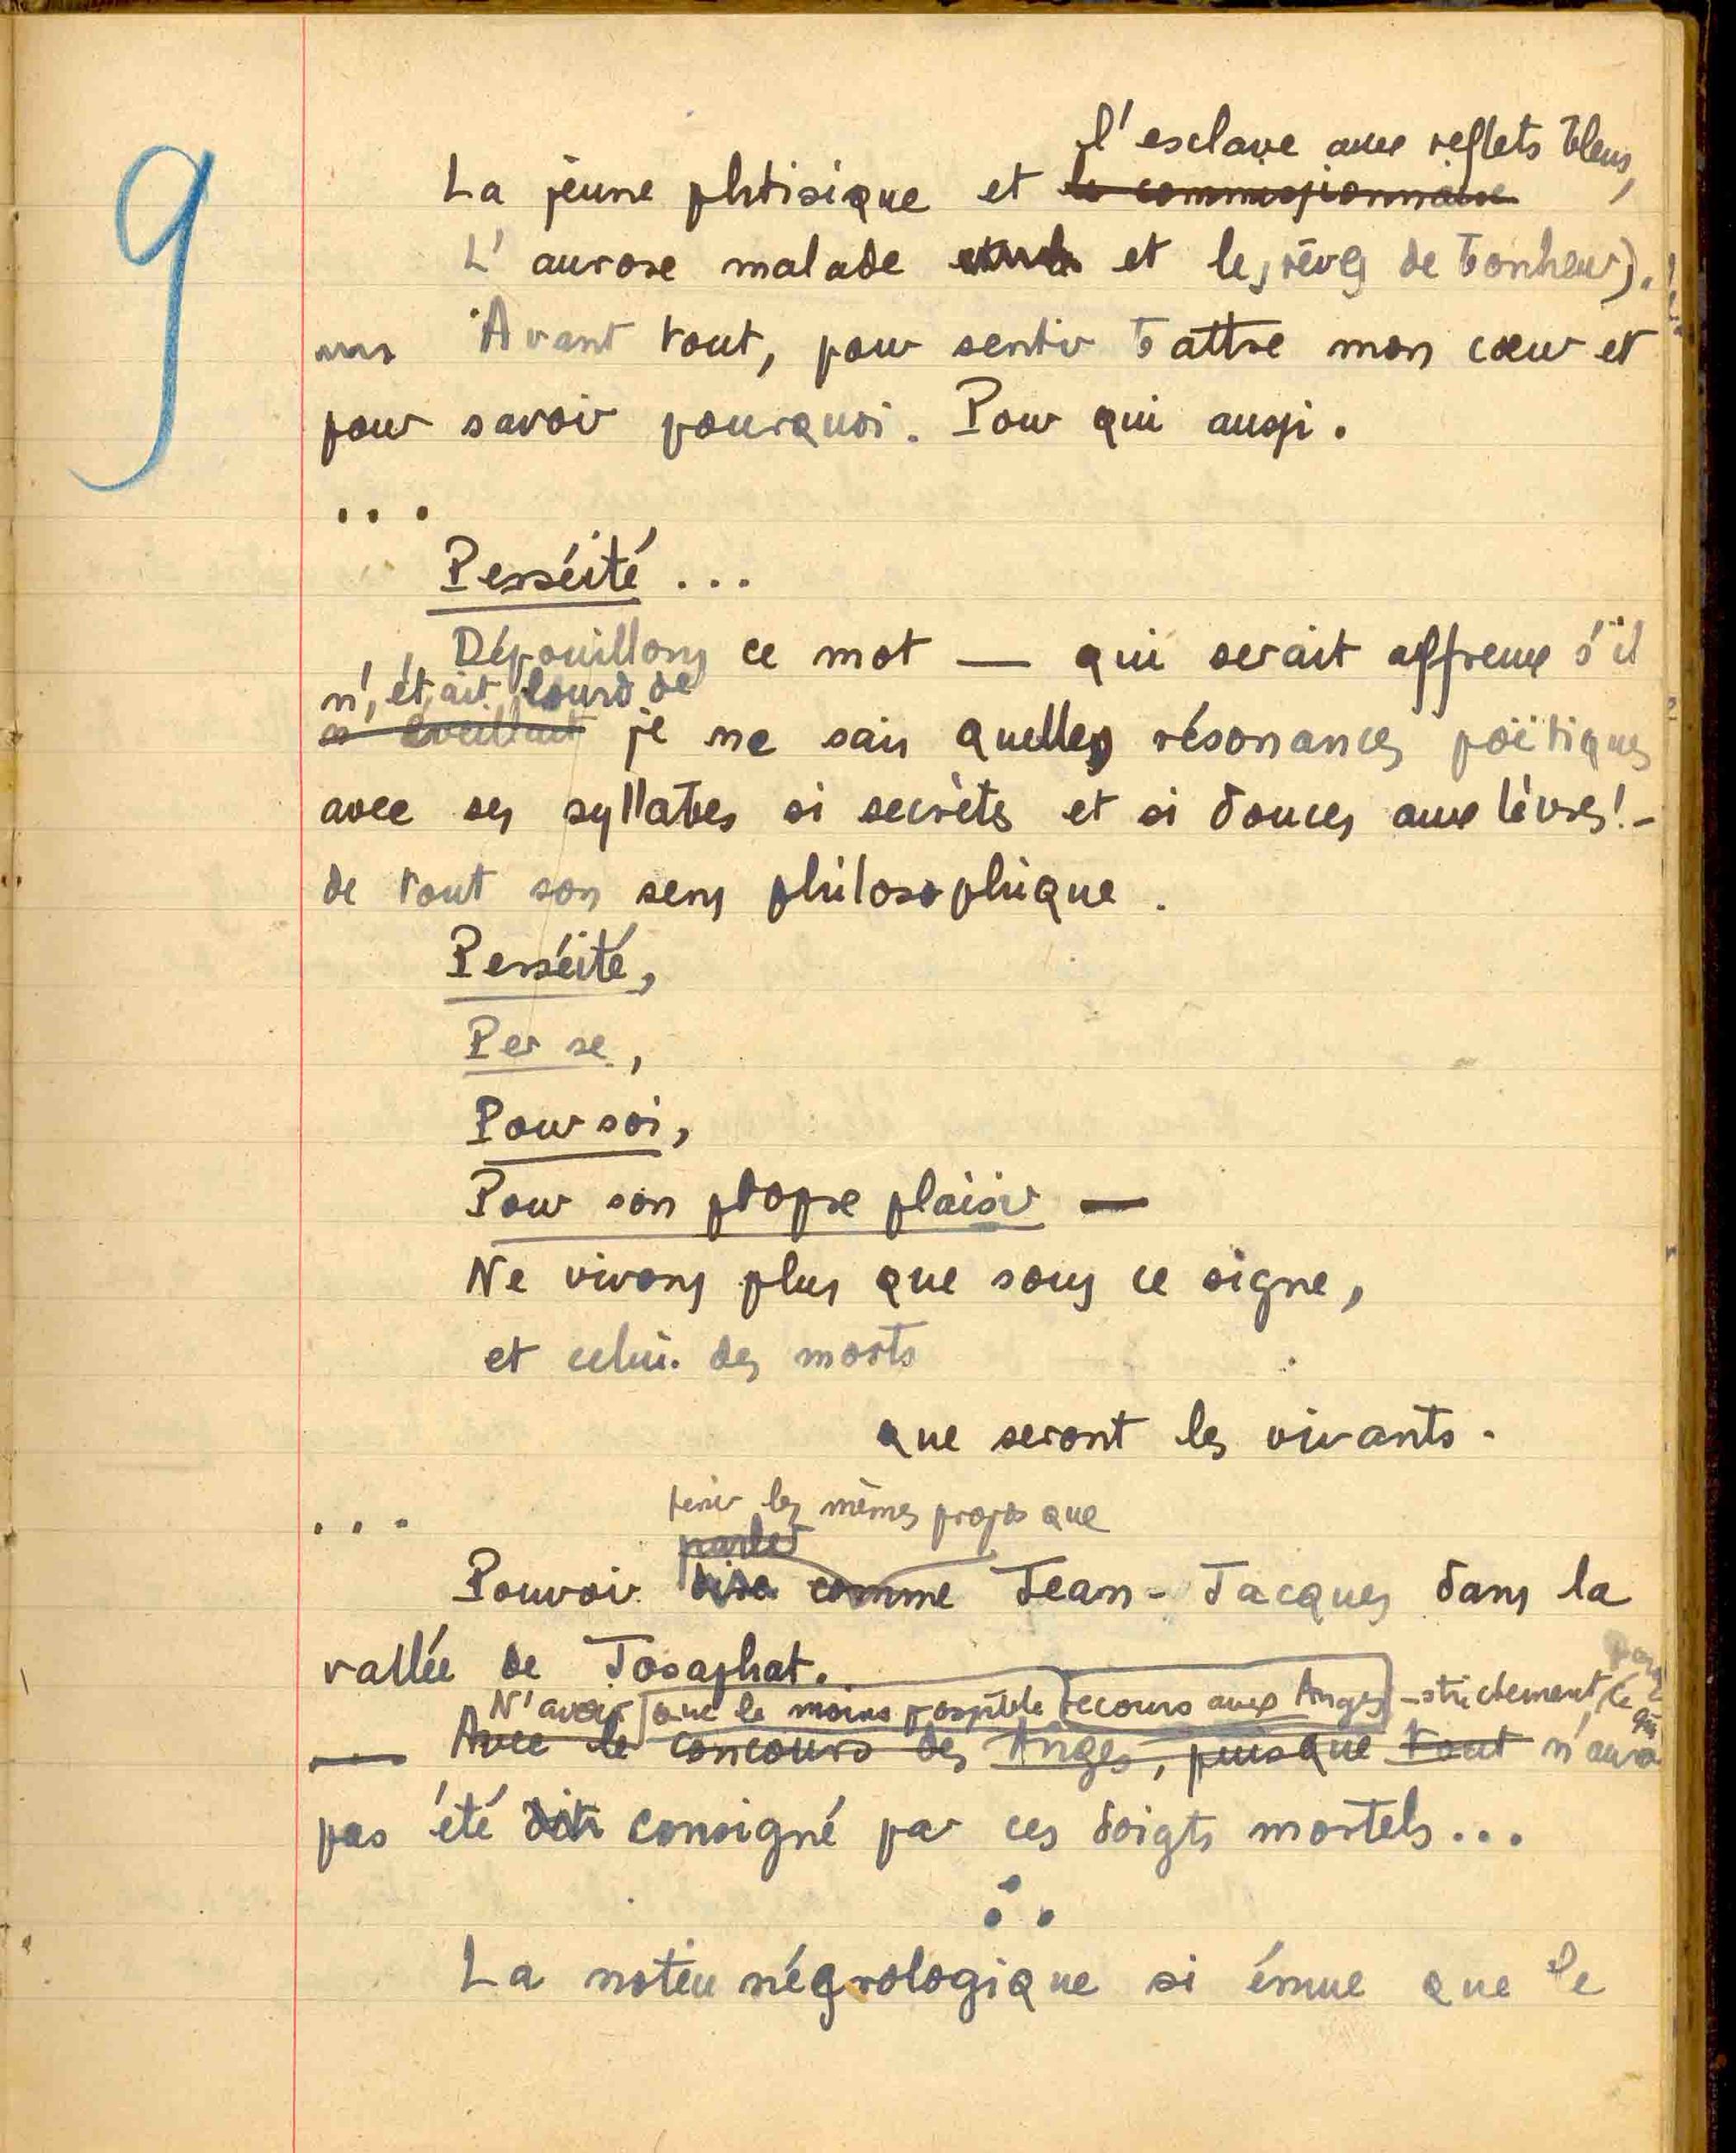 9
l'esclave aux reflets bleus,
La jeune phtisique et le commissionnaire
L'aurore malade et les rêves de bonheur).
Avant tout, pour sentir battre mon cœur et
pour savoir pourquoi. Pour qui aussi.
...
Perséité...
Dépouillons ce mot — qui serait affreux s'il
n'était lourd de
n'éveillait je ne sais quelles résonances poëtiques
avec ses syllabes si secrètes et si douces aux lèvres! -
de tout son sens philosophique.
Perséité,
Per se,
Pour soi,
Pour son propre plaisir —
Ne vivons plus que sous ce signe,
et celui des morts
que seront les vivants.
...
tenir les mêmes propos que
parler
Pouvoir dire comme Jean-Jacques dans la
vallée de Josaphat.
N'avoir que le moins possible recours aux Anges - strictement, le
— Avec le concours des Anges, puisque tout n'aura
pas été dit consigné par ces doigts mortels...
La notice nécrologique si émue que le